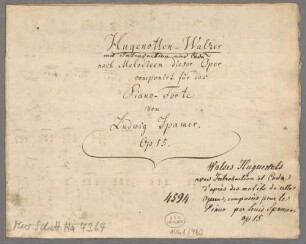 Hugenotten-Walzer
mit Introduction und Coda
nach Melodieen dieser Oper
componirt für das
Piano-Forte
von
Ludwig Spamer.
Op 15.
Walses Huguenots
avec Introduction et Coda
d'après des motifs de cette
Opera, composées pour le
Piano par Louis Spamer.
op 15
4594
Mus. Schott. Ha 4369